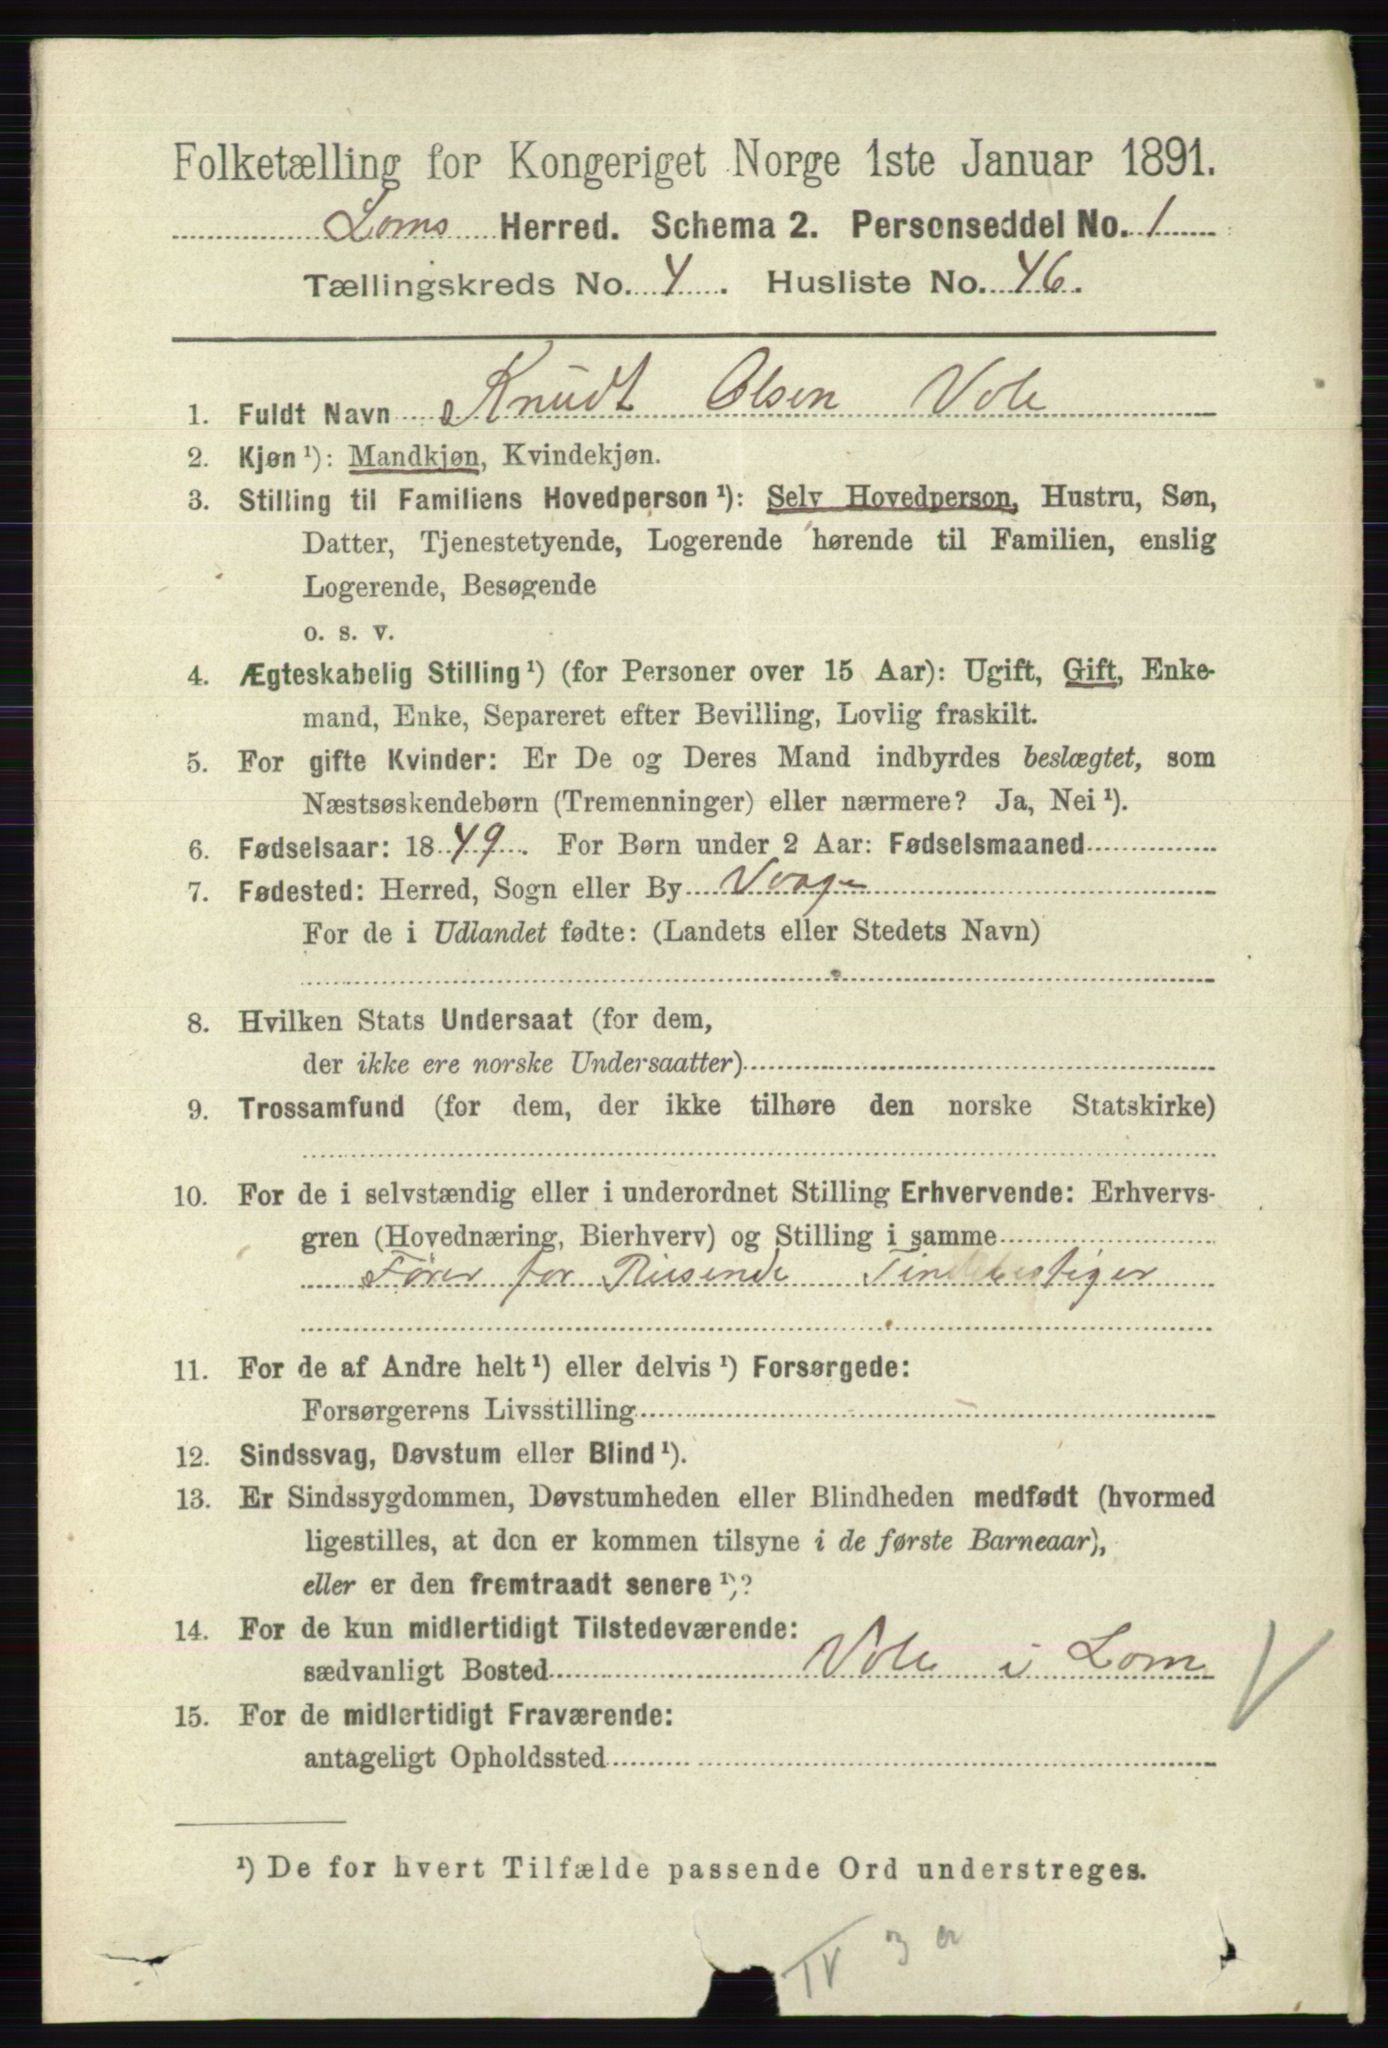 Folketælling for Kongeriget Norge 1ste Januar 1891.
Loms Herred. Schema 2. Personseddel No. 1
Tællingskreds No. 4. Husliste No. 46.
1. Fuldt Navn Knudt Olsen Vole
2. Kjøn¹): Mandkjøn, Kvindekjøn.
3. Stilling til Familiens Hovedperson¹): Selv Hovedperson, Hustru, Søn,
Datter, Tjenestetyende, Logerende hørende til Familien, enslig
Logerende, Besøgende
o. s. v.
4. Ægteskabelig Stilling¹) (for Personer over 15 Aar): Ugift, Gift, Enke-
mand, Enke, Separeret efter Bevilling, Lovlig fraskilt.
5. For gifte Kvinder: Er De og Deres Mand indbyrdes beslægtet, som
Næstsøskendebørn (Tremenninger) eller nærmere? Ja, Nei¹).
6. Fødselsaar: 1849. For Børn under 2 Aar: Fødselsmaaned
7. Fødested: Herred, Sogn eller By Vaage
For de i Udlandet fødte: (Landets eller Stedets Navn)
8. Hvilken Stats Undersaat (for dem,
der ikke ere norske Undersaatter)
9. Trossamfund (for dem, der ikke tilhøre den norske Statskirke)
10. For de i selvstændig eller i underordnet Stilling Erhvervende: Erhvervs-
gren (Hovednæring, Bierhverv) og Stilling i samme
Fører for Reisende Tindebestiger
11. For de af Andre helt¹) eller delvis¹) Forsørgede:
Forsørgerens Livsstilling
12. Sindssvag, Døvstum eller Blind¹).
13. Er Sindssygdommen, Døvstumheden eller Blindheden medfødt (hvormed
ligestilles, at den er kommen tilsyne i de første Barneaar),
eller er den fremtraadt senere¹)?
14. For de kun midlertidigt Tilstedeværende:
sædvanligt Bosted Vole i Lom
15. For de midlertidigt Fraværende:
antageligt Opholdssted
¹) De for hvert Tilfælde passende Ord understreges.
IV 3